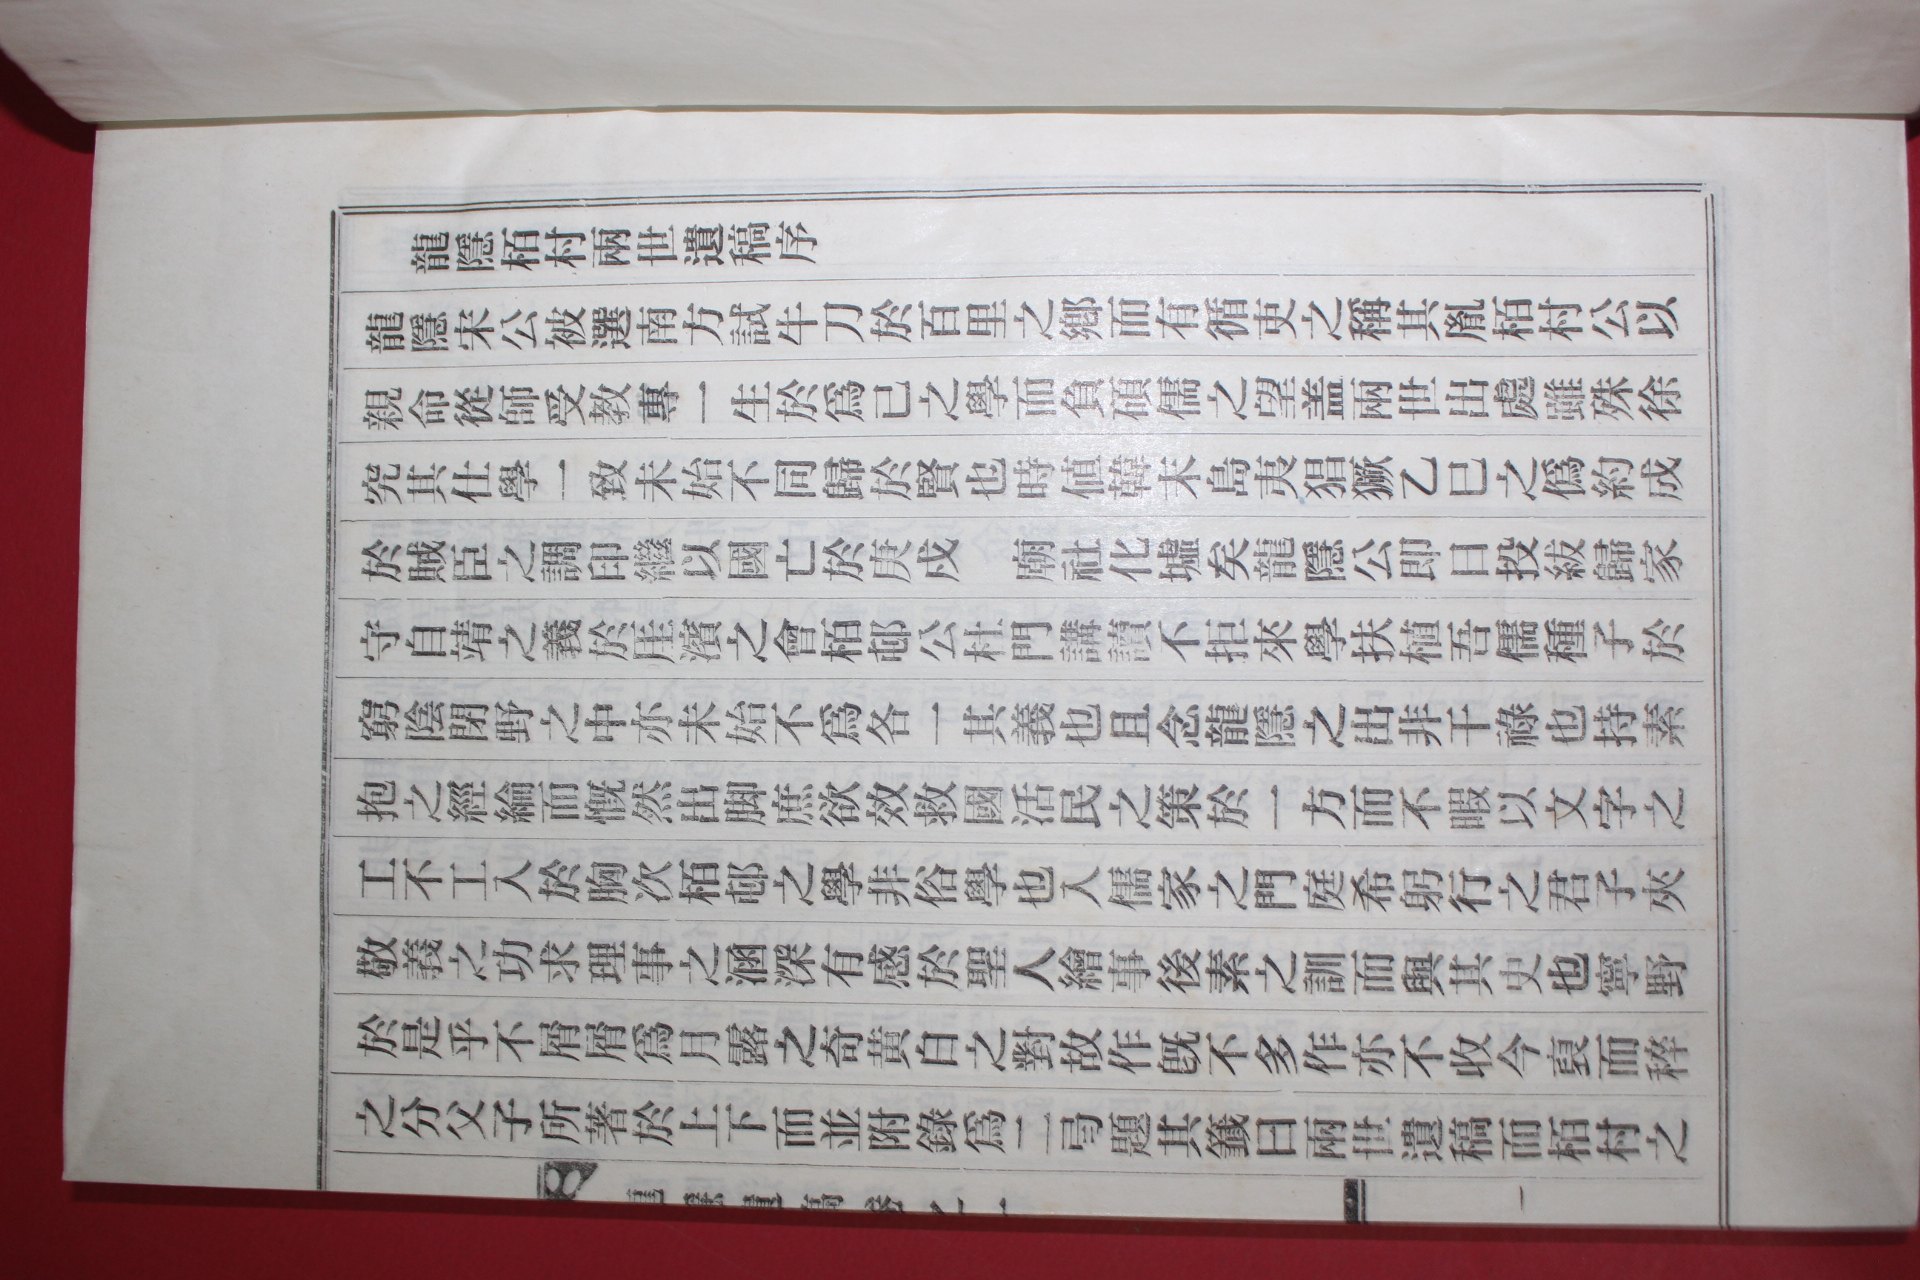 龍隱栢村兩世遺稿序
龍隱宋公被選南方試牛刀於百里之鄕而有循吏之稱其胤栢村公以
親命從師受敎專一生於爲己之學而負碩儒之望盖兩世出處雖殊徐
究其仕學一致未始不同歸於賢也時値韓末島夷猖獗乙巳之僞約成
於賊臣之調印繼以國亡於庚戌 廟社化墟矣龍隱公卽日投紱歸家
守自靖之義於厓濱之會栢邨公杜門講讀不拒來學扶植吾儒種子於
窮陰閉野之中亦未始不爲各一其義也且念龍隱之出非干祿也持素
抱之經綸而慨然出脚庶欲效救國活民之策於一方而不暇以文字之
工不工入於胸次栢邨之學非俗學也入儒家之門庭希躬行之君子夾
敬義之功求理事之涵深有感於聖人繪事後素之訓而與其史也寧野
於是乎不屑屑爲月露之奇黃白之對故作旣不多作亦不收今裒而稡
之分父子所著於上下而並附錄爲二弓題其籤曰兩世遺稿而栢村之
一